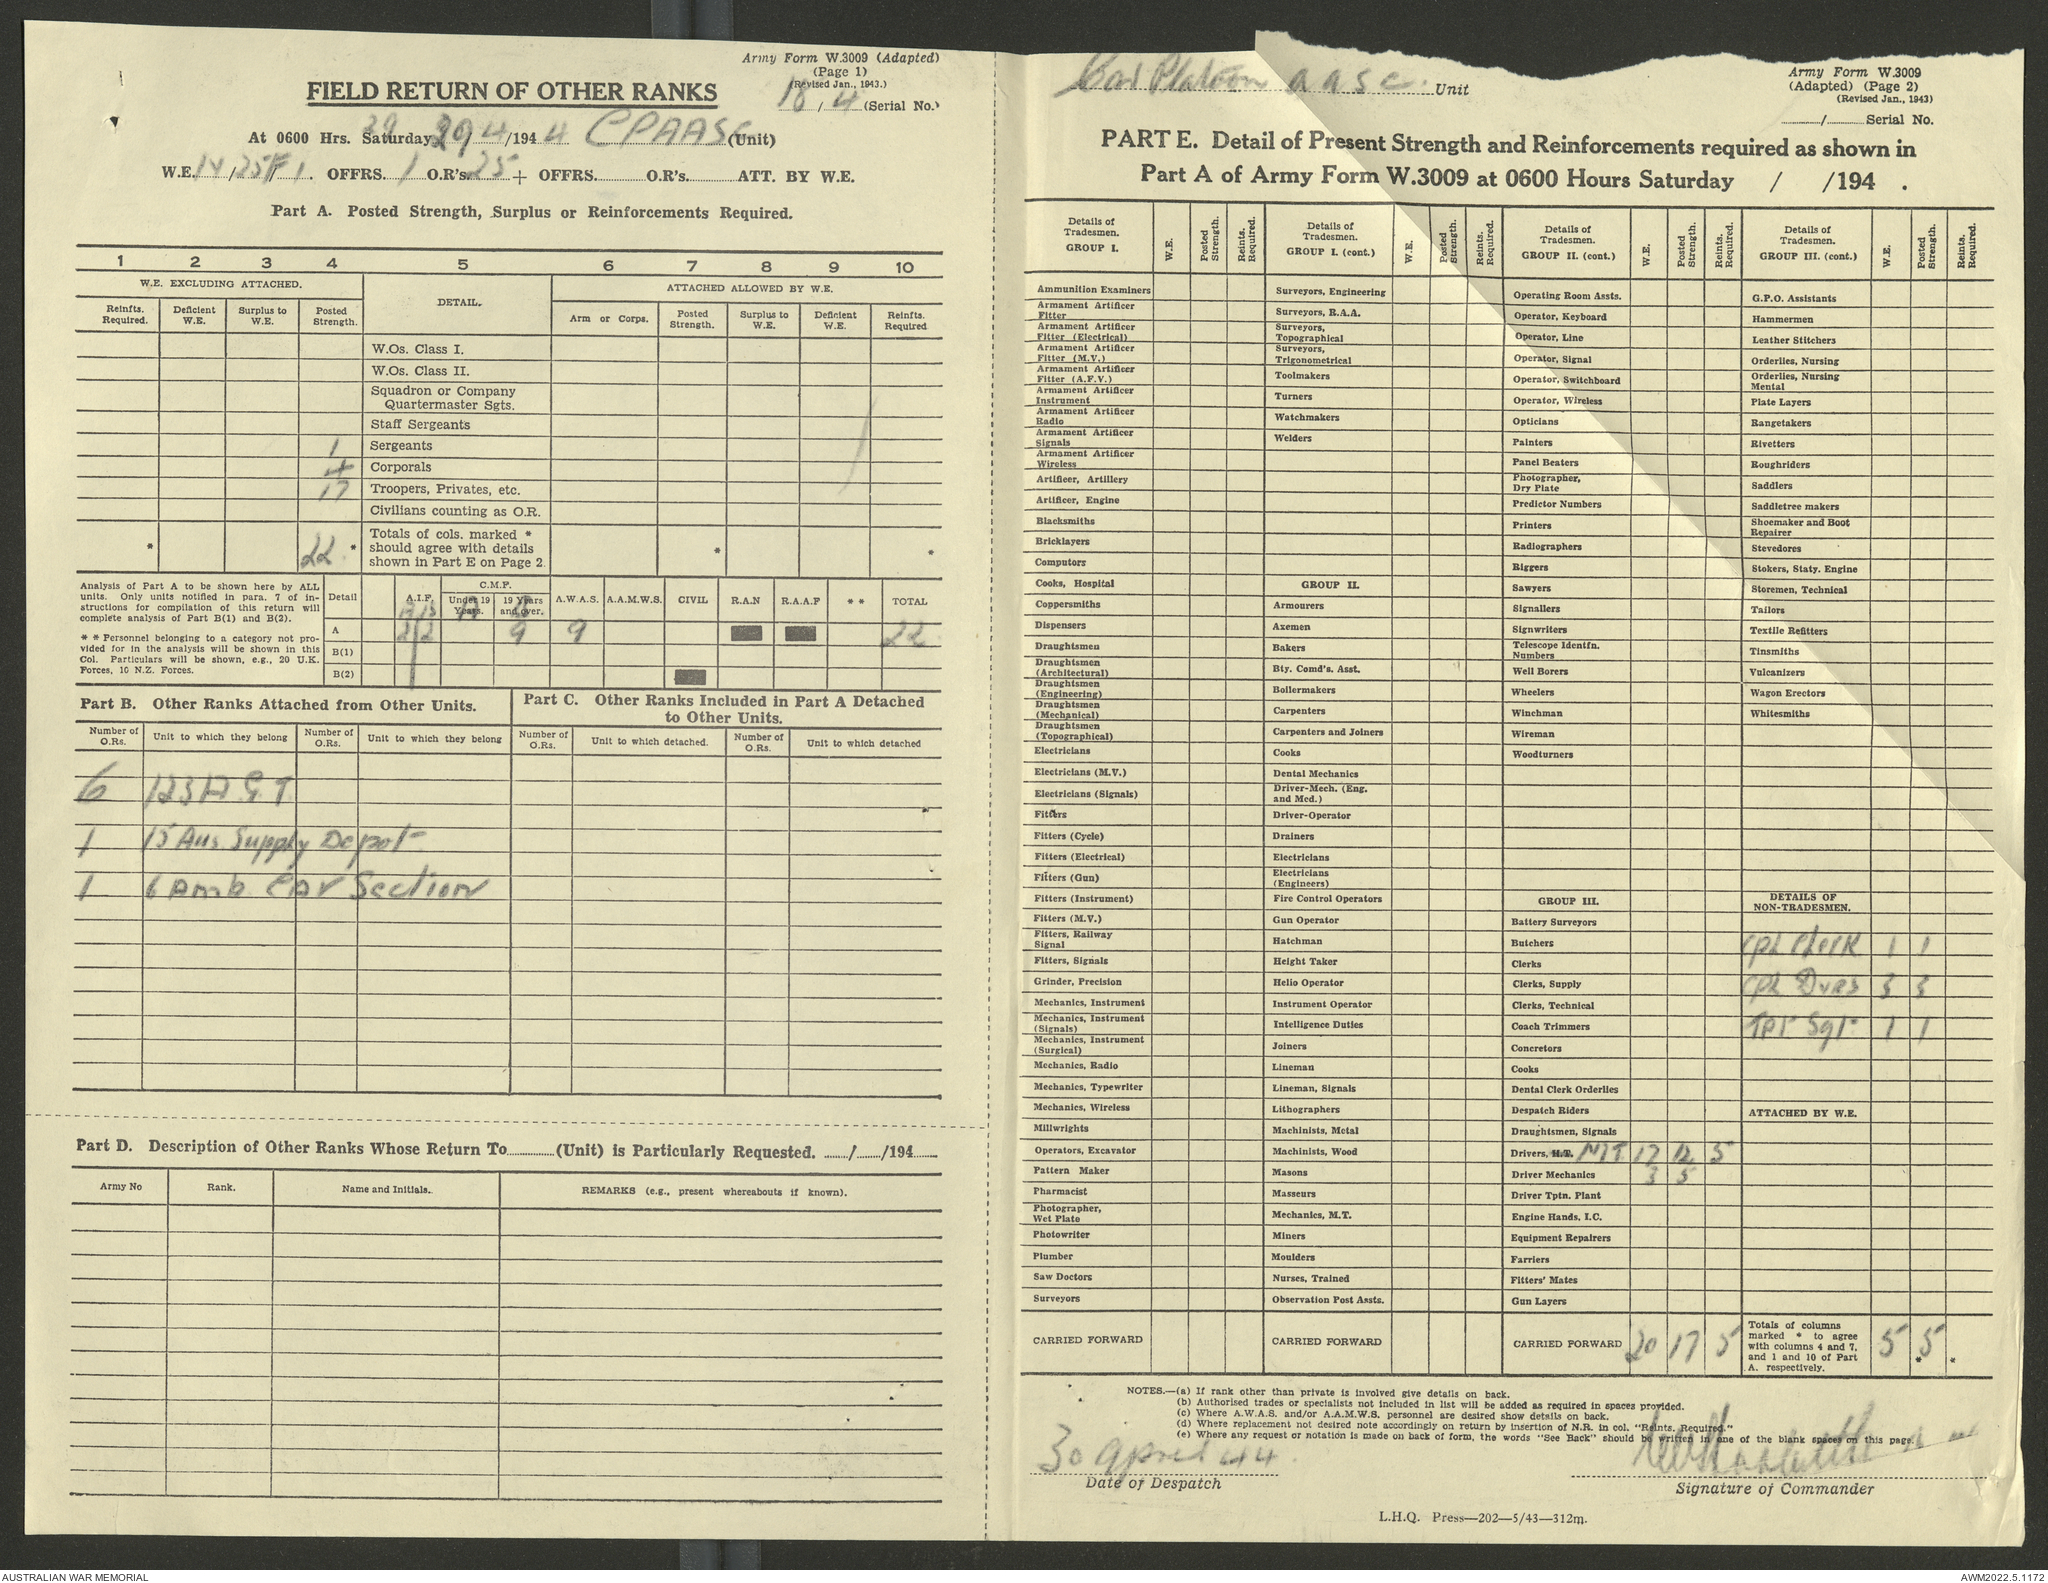 Army Form W.3009 (Adapted)
(Page 1)
(Revised Jan., 1943.)
FIELD RETURN OF OTHER RANKS
18/4 (Serial No.)
At 0600 Hrs. Saturday 29/4/1944 CPAASC (Unit)
W.E. 14/25F/1. OFFRS. 1 O.R's. 25 + OFFRS. O.R's. ATT. BY W.E.
Part A. Posted Strength, Surplus or Reinforcements Required.
1 2 3 4 5 6 7 8 9 10
W.E. EXCLUDING ATTACHED. DETAIL. ATTACHED ALLOWED BY W.E.
Reinfts. Required. Deficient W.E. Surplus to W.E. Posted Strength. Arm or Corps. Posted Strength. Surplus to W.E. Deficient W.E. Reinfts. Required
W.Os. Class I.
W.Os. Class II.
Squadron or Company
Quartermaster Sgts.
Staff Sergeants
1 Sergeants
4 Corporals
17 Troopers, Privates, etc.
Civilians counting as O.R.
* 22 * Totals of cols. marked * should agree with details shown in Part E on Page 2. * *
Analysis of Part A to be shown here by ALL
units. Only units notified in para. 7 of in-
structions for compilation of this return will
complete analysis of Part B(1) and B(2).
* * Personnel belonging to a category not pro-
vided for in the analysis will be shown in this
Col. Particulars will be shown, e.g., 20 U.K.
Forces, 10 N.Z. Forces.
Detail A.I.F. C.M.F. Under 19 Years. 19 Years and over. A.W.A.S. A.A.M.W.S. CIVIL R.A.N R.A.A.F * * TOTAL
A 2 2 9 9 22
B(1)
B(2)
Part B. Other Ranks Attached from Other Units.
Part C. Other Ranks Included in Part A Detached
to Other Units.
Number of O.Rs. Unit to which they belong Number of O.Rs. Unit to which they belong Number of O.Rs. Unit to which detached. Number of O.Rs. Unit to which detached
6 123 A.G.T.
1 15 Aus Supply Depot
1 6 Amb Car Section
Part D. Description of Other Ranks Whose Return To (Unit) is Particularly Requested. / /194
Army No Rank. Name and Initials. REMARKS (e.g., present whereabouts if known).
Car Platoon a a s c. Unit
Army Form W.3009
(Adapted) (Page 2)
(Revised Jan., 1943)
/ Serial No.
PART E. Detail of Present Strength and Reinforcements required as shown in
Part A of Army Form W.3009 at 0600 Hours Saturday / /194 .
Details of Tradesmen. GROUP I. W.E. Posted Strength. Reints. Required.
Ammunition Examiners
Armament Artificer Fitter
Armament Artificer Fitter (Electrical)
Armament Artificer Fitter (M.V.)
Armament Artificer Fitter (A.F.V.)
Armament Artificer Instrument
Armament Artificer Radio
Armament Artificer Signals
Armament Artificer Wireless
Artificer, Artillery
Artificer, Engine
Blacksmiths
Bricklayers
Computors
Cooks, Hospital
Coppersmiths
Dispensers
Draughtsmen
Draughtsmen (Architectural)
Draughtsmen (Engineering)
Draughtsmen (Mechanical)
Draughtsmen (Topographical)
Electricians
Electricians (M.V.)
Electricians (Signals)
Fitters
Fitters (Cycle)
Fitters (Electrical)
Fitters (Gun)
Fitters (Instrument)
Fitters (M.V.)
Fitters, Railway Signal
Fitters, Signals
Grinder, Precision
Mechanics, Instrument
Mechanics, Instrument (Signals)
Mechanics, Instrument (Surgical)
Mechanics, Radio
Mechanics, Typewriter
Mechanics, Wireless
Millwrights
Operators, Excavator
Pattern Maker
Pharmacist
Photographer, Wet Plate
Photowriter
Plumber
Saw Doctors
Surveyors
CARRIED FORWARD
Details of Tradesmen. GROUP I. (cont.) W.E. Posted Strength. Reints. Required.
Surveyors, Engineering
Surveyors, R.A.A.
Surveyors, Topographical
Surveyors, Trigonometrical
Toolmakers
Turners
Watchmakers
Welders
GROUP II.
Armourers
Axemen
Bakers
Bty. Comd's. Asst.
Boilermakers
Carpenters
Carpenters and Joiners
Cooks
Dental Mechanics
Driver-Mech. (Eng. and Med.)
Driver-Operator
Drainers
Electricians
Electricians (Engineers)
Fire Control Operators
Gun Operator
Hatchman
Height Taker
Helio Operator
Instrument Operator
Intelligence Duties
Joiners
Lineman
Lineman, Signals
Lithographers
Machinists, Metal
Machinists, Wood
Masons
Masseurs
Mechanics, M.T.
Miners
Moulders
Nurses, Trained
Observation Post Assts.
CARRIED FORWARD
Details of Tradesmen. GROUP II. (cont.) W.E. Posted Strength. Reints. Required.
Operating Room Assts.
Operator, Keyboard
Operator, Line
Operator, Signal
Operator, Switchboard
Operator, Wireless
Opticians
Painters
Panel Beaters
Photographer, Dry Plate
Predictor Numbers
Printers
Radiographers
Riggers
Sawyers
Signallers
Signwriters
Telescope Identfn. Numbers
Well Borers
Wheelers
Winchman
Wireman
Woodturners
GROUP III.
Battery Surveyors
Butchers
Clerks
Clerks, Supply
Clerks, Technical
Coach Trimmers
Concretors
Cooks
Dental Clerk Orderlies
Despatch Riders
Draughtsmen, Signals
Drivers, H.T. M.T. 17 12 5
Driver Mechanics 3 5
Driver Tptn. Plant
Engine Hands, I.C.
Equipment Repairers
Farriers
Fitters' Mates
Gun Layers
CARRIED FORWARD 20 17 5
Details of Tradesmen. GROUP III. (cont.) W.E. Posted Strength. Reints. Required.
G.P.O. Assistants
Hammermen
Leather Stitchers
Orderlies, Nursing
Orderlies, Nursing Mental
Plate Layers
Rangetakers
Rivetters
Roughriders
Saddlers
Saddletree makers
Shoemaker and Boot Repairer
Stevedores
Stokers, Staty. Engine
Storemen, Technical
Tailors
Textile Refitters
Tinsmiths
Vulcanizers
Wagon Erectors
Whitesmiths
DETAILS OF NON-TRADESMEN.
Cpl Clerk 1 1
Cpl Dvrs 3 3
Tpt Sgt 1 1
ATTACHED BY W.E.
Totals of columns marked * to agree with columns 4 and 7, and 1 and 10 of Part A. respectively. 5 5 * *
NOTES.—(a) If rank other than private is involved give details on back.
(b) Authorised trades or specialists not included in list will be added as required in spaces provided.
(c) Where A.W.A.S. and/or A.A.M.W.S. personnel are desired show details on back.
(d) Where replacement not desired note accordingly on return by insertion of N.R. in col. "Reints. Required."
(e) Where any request or notation is made on back of form, the words "See Back" should be written in one of the blank spaces on this page.
30 April 44
Date of Despatch
Signature of Commander
L.H.Q. Press—202—5/43—312m.
AUSTRALIAN WAR MEMORIAL
AWM2022.5.1172